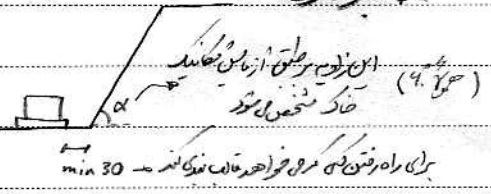 این زاویه بر طبق آزمایش مکانیک
خاک مشخص می شود
(حدوداً 60°)
α
برای راه رفتن کسی که می خواهد قالب بندی کند → min 30